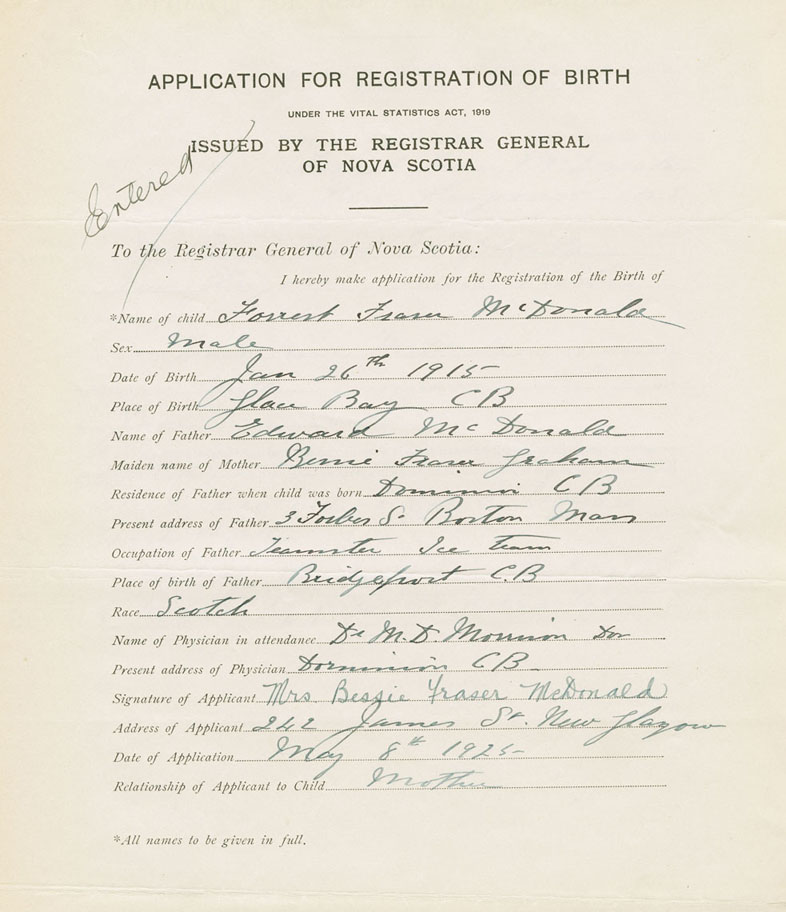 APPLICATION FOR REGISTRATION OF BIRTH
UNDER THE VITAL STATISTICS ACT, 1919
ISSUED BY THE REGISTRAR GENERAL
OF NOVA SCOTIA
Entered
To the Registrar General of Nova Scotia:
I hereby make application for the Registration of the Birth of
*Name of child Forrest Fraser McDonald
Sex Male
Date of Birth Jan 26th 1915
Place of Birth Glace Bay CB
Name of Father Edward McDonald
Maiden name of Mother Fraser Graham
Residence of Father when child was born Dominion CB
Present address of Father 3 Forbes St Boston Mass
Occupation of Father Teamster Ice team
Place of birth of Father Bridgeport C.B
Race Scotch
Name of Physician in attendance Dr M.D Morrison Dom
Present address of Physician Dominion CB
Signature of Applicant Mrs. Bessie Fraser McDonald
Address of Applicant 242 James St. New Glasgow
Date of Application May 8th 1925
Relationship of Applicant to Child Mother
*All names to be given in full.